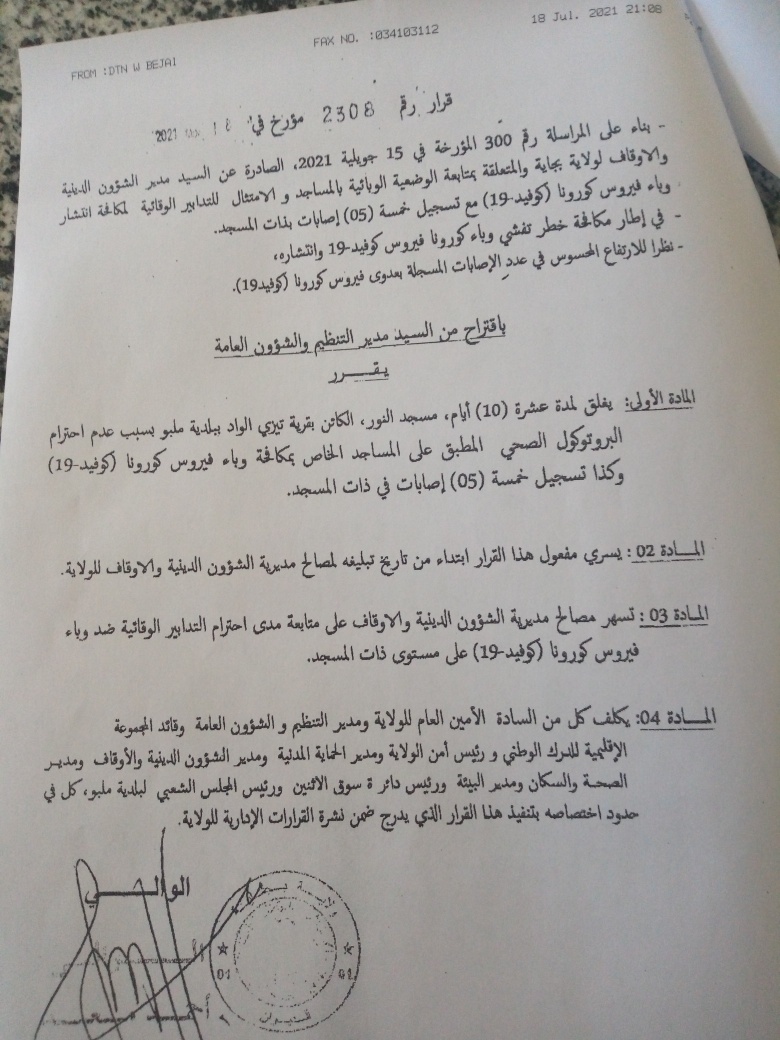 FROM :DTN W BEJAI FAX NO. :034103112 18 Jul. 2021 21:08
قرار رقم 2308 مؤرخ في 18 2021
- بناء على المراسلة رقم 300 المؤرخة في 15 جويلية 2021، الصادرة عن السيد مدير الشؤون الدينية
والاوقاف لولاية بجاية والمتعلقة بمتابعة الوضعية الوبائية بالمساجد و الامتثال للتدابير الوقائية لمكافحة انتشار
وباء فيروس كورونا (كوفيد-19) مع تسجيل خمسة (05) إصابات بذات المسجد.
- في إطار مكافحة خطر تفشي وباء كورونا فيروس كوفيد-19 وانتشاره،
- نظرا للارتفاع المحسوس في عدد الإصابات المسجلة بعدوى فيروس كورونا (كوفيد19).
باقتراح من السيد مدير التنظيم والشؤون العامة
يقـــــرر
المادة الأولى: يغلق لمدة عشرة (10) أيام، مسجد النور، الكائن بقرية تيزي الواد ببلدية ملبو بسبب عدم احترام
البروتوكول الصحي المطبق على المساجد الخاص بمكافحة وباء فيروس كورونا (كوفيد-19)
وكذا تسجيل خمسة (05) إصابات في ذات المسجد.
المـــادة 02 : يسري مفعول هذا القرار ابتداء من تاريخ تبليغه لمصالح مديرية الشؤون الدينية والاوقاف للولاية.
المـادة 03 : تسهر مصالح مديرية الشؤون الدينية والاوقاف على متابعة مدى احترام التدابير الوقائية ضد وباء
فيروس كورونا (كوفيد-19) على مستوى ذات المسجد.
المـــادة 04: يكلف كل من السادة الأمين العام للولاية ومدير التنظيم و الشؤون العامة وقائد المجموعة
الإقليمية للدرك الوطني و رئيس أمن الولاية ومدير الحماية المدنية ومدير الشؤون الدينية والأوقاف ومديـر
الصحة والسكان ومدير البيئة ورئيس دائر ة سوق الاثنين ورئيس المجلس الشعبي لبلدية ملبو، كل في
حدود اختصاصه بتنفيذ هذا القرار الذي يدرج ضمن نشرة القرارات الإدارية للولاية.
الوالـــــي
01 01